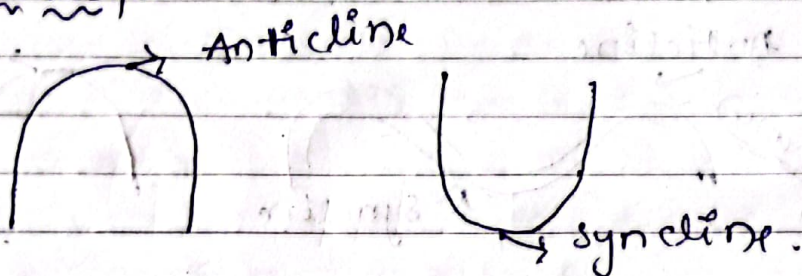 Anticline
syncline.